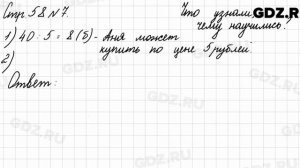 Стр 58 № 7.
Что узнали,
чему научились?
1) 40 : 5 = 8 (б) - Аня может
купить по цене 5 рублей
2)
Ответ:
GDZ.RU